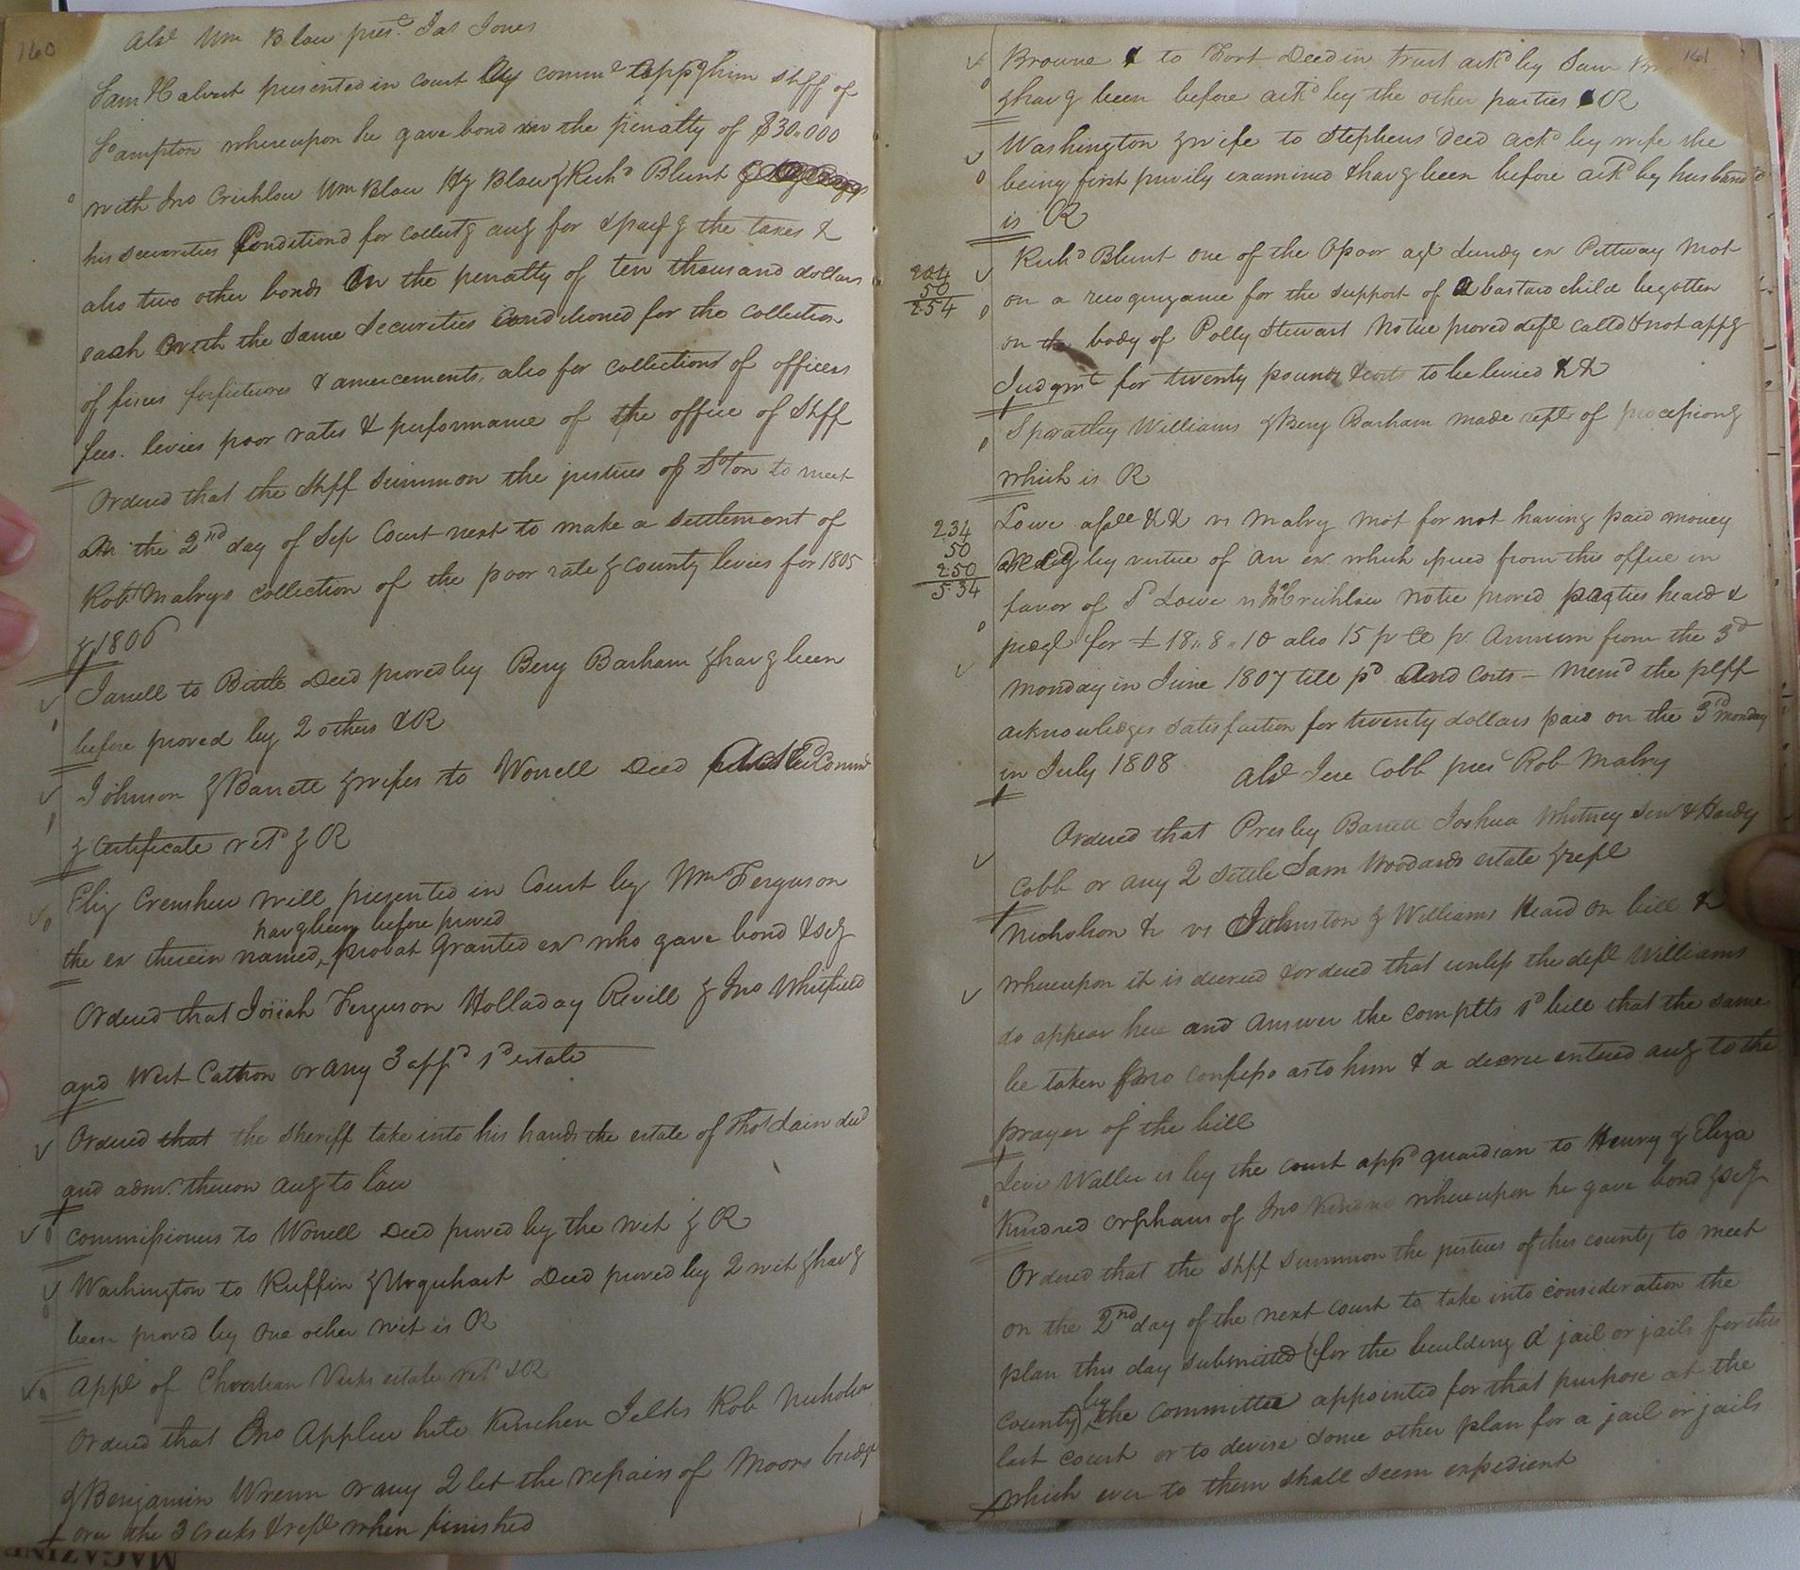 160
Abst Wm Blow pres.t Jas Jones
Sam Calvert presented in court comm.n appg him shff of
S.ampton whereupon he gave bond in the penalty of $30.000
with Jno Crichlow Wm Blow Hy Blow & Rich.d Blunt
his securities Conditiond for collectg aug for & payg the taxes &
also two other bonds In the penalty of ten thousand dollars
each with the same Securities Conditioned for the collection
of fines forfeitures & amercements, also for collections of officers
fees. levies poor rates & performance of the office of Shff
Ordered that the shff summon the justices of S.oTon to meet
on the 2nd day of Sep Court next to make a settlement of
Rob.t Mabrys collection of the poor rate & county levies for 1805
& 1806
Jarrell to Bittle Deed proved by Benj Barham & havg been
before proved by 2 others & R
Johnson & Barrett & wifes to Worrell Deed Comn
& Certificate ret.d & R
Eliz Crenshew will presented in Court by Wm Ferguson
havg been before proved
the ex therein named, probat Granted ex who gave bond & scy
Ordered that Josiah Ferguson Holladay Revill & Jno Whitfield
and West Cathon or any 3 app.d s.d estate
Ordered that the sheriff take into his hands the estate of Tho.s Lain decd
and adm.r thereon aug to law
Commissioners to Worrell Deed proved by the wit & R
Washington to Ruffin & Urquhart Deed proved by 2 wit & havg
been proved by one other wit is R
Appt of estate ret.d & R
Ordered that Jno Applewhite Kinchen Jelks Rob Nicholson
& Benjamin Wrenn or any 2 let the repairs of Moors bridge
over the 3 creeks & rept when finished
161
Browne & to Fort Deed in trust ackd by Sam
& havg been before ackd by the other parties & R
Washington & wife to Stephens Deed ackd by wife she
being first privily examined & havg been before ackd by husband
is R
Rich.d Blunt one of the Opoor agt Lundy ex Pettway Mot
204
50
2.54
on a recognizance for the support of a bastard child begotten
on the body of Polly Stewart Notice proved deft calld & not appg
Judgmt for twenty pounds & costs to be levied &&
Spratley Williams & Benj Barham made rept of processiong
which is R
Lowe assee && vs Mabry mot for not having paid money
234
50
250
5.34
by virtue of an ex which issued from this office in
favor of S Lowe vs Crichlow notice proved parties heard &
judgt for £18..8..10 also 15 p Ct pr Annum from the 3d
monday in June 1807 till pd And Costs – Memd the plff
acknowledges satisfaction for twenty dollars paid on the 3rd monday
in July 1808
Abst Jere Cobb pres Rob Mabry
Ordered that Presley Barrett Joshua Whitney Senr & Hardy
Cobb or any 2 settle Sam Woodards estate & rept
Nicholson & vs Johnston & Williams Heard on bill &
whereupon it is decreed & ordered that unless the deft Williams
do appear here and answer the complts sd bill that the same
be taken pro confesso as to him & a decree entered aug to the
prayer of the bill
Levi Waller is by the court appd guardian to Henry & Eliza
Kindred orphans of Jno Kindred whereupon he gave bond & scy
Ordered that the shff summon the justices of this county to meet
on the 2nd day of the next court to take into consideration the
plan this day submitted (for the building a jail or jails for this
County) by the committee appointed for that purpose at the
last court or to devise some other plan for a jail or jails
which ever to them shall seem expedient
MAGAZINE